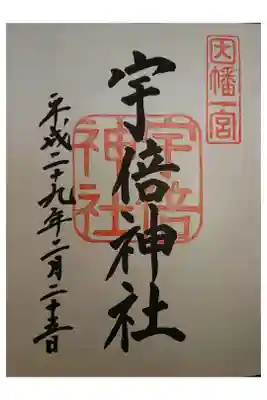 因幡一宮
宇倍神社
宇倍神社
平成二十九年二月二十五日